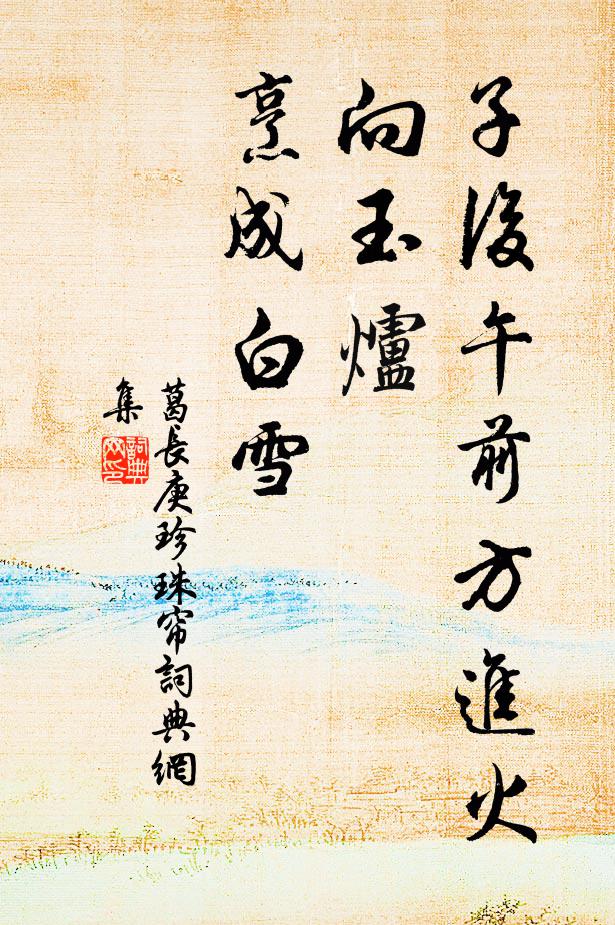 子後午前方進火
向玉爐
烹成白雪
葛長庚珍珠帘詞典網
集
詞典
网印